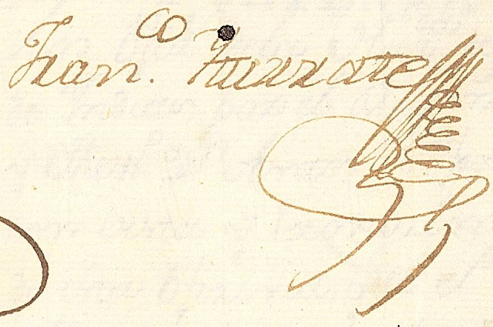 Fran.co Iturrate